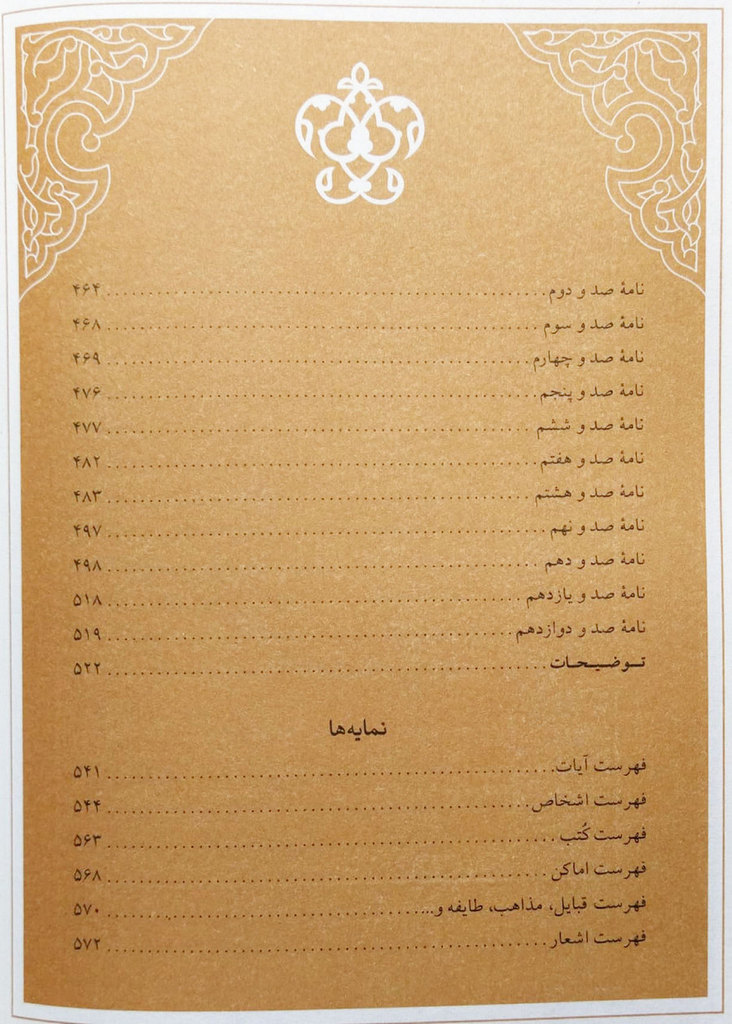 نامهٔ صد و دوم ........ ۴۶۴
نامهٔ صد و سوم ........ ۴۶۸
نامهٔ صد و چهارم ........ ۴۶۹
نامهٔ صد و پنجم ........ ۴۷۶
نامهٔ صد و ششم ........ ۴۷۷
نامهٔ صد و هفتم ........ ۴۸۲
نامهٔ صد و هشتم ........ ۴۸۳
نامهٔ صد و نهم ........ ۴۹۷
نامهٔ صد و دهم ........ ۴۹۸
نامهٔ صد و یازدهم ........ ۵۱۸
نامهٔ صد و دوازدهم ........ ۵۱۹
توضیحات ........ ۵۲۲
نمایه‌ها
فهرست آیات ........ ۵۴۱
فهرست اشخاص ........ ۵۴۴
فهرست کُتب ........ ۵۶۳
فهرست اماکن ........ ۵۶۸
فهرست قبایل، مذاهب، طایفه و... ........ ۵۷۰
فهرست اشعار ........ ۵۷۲